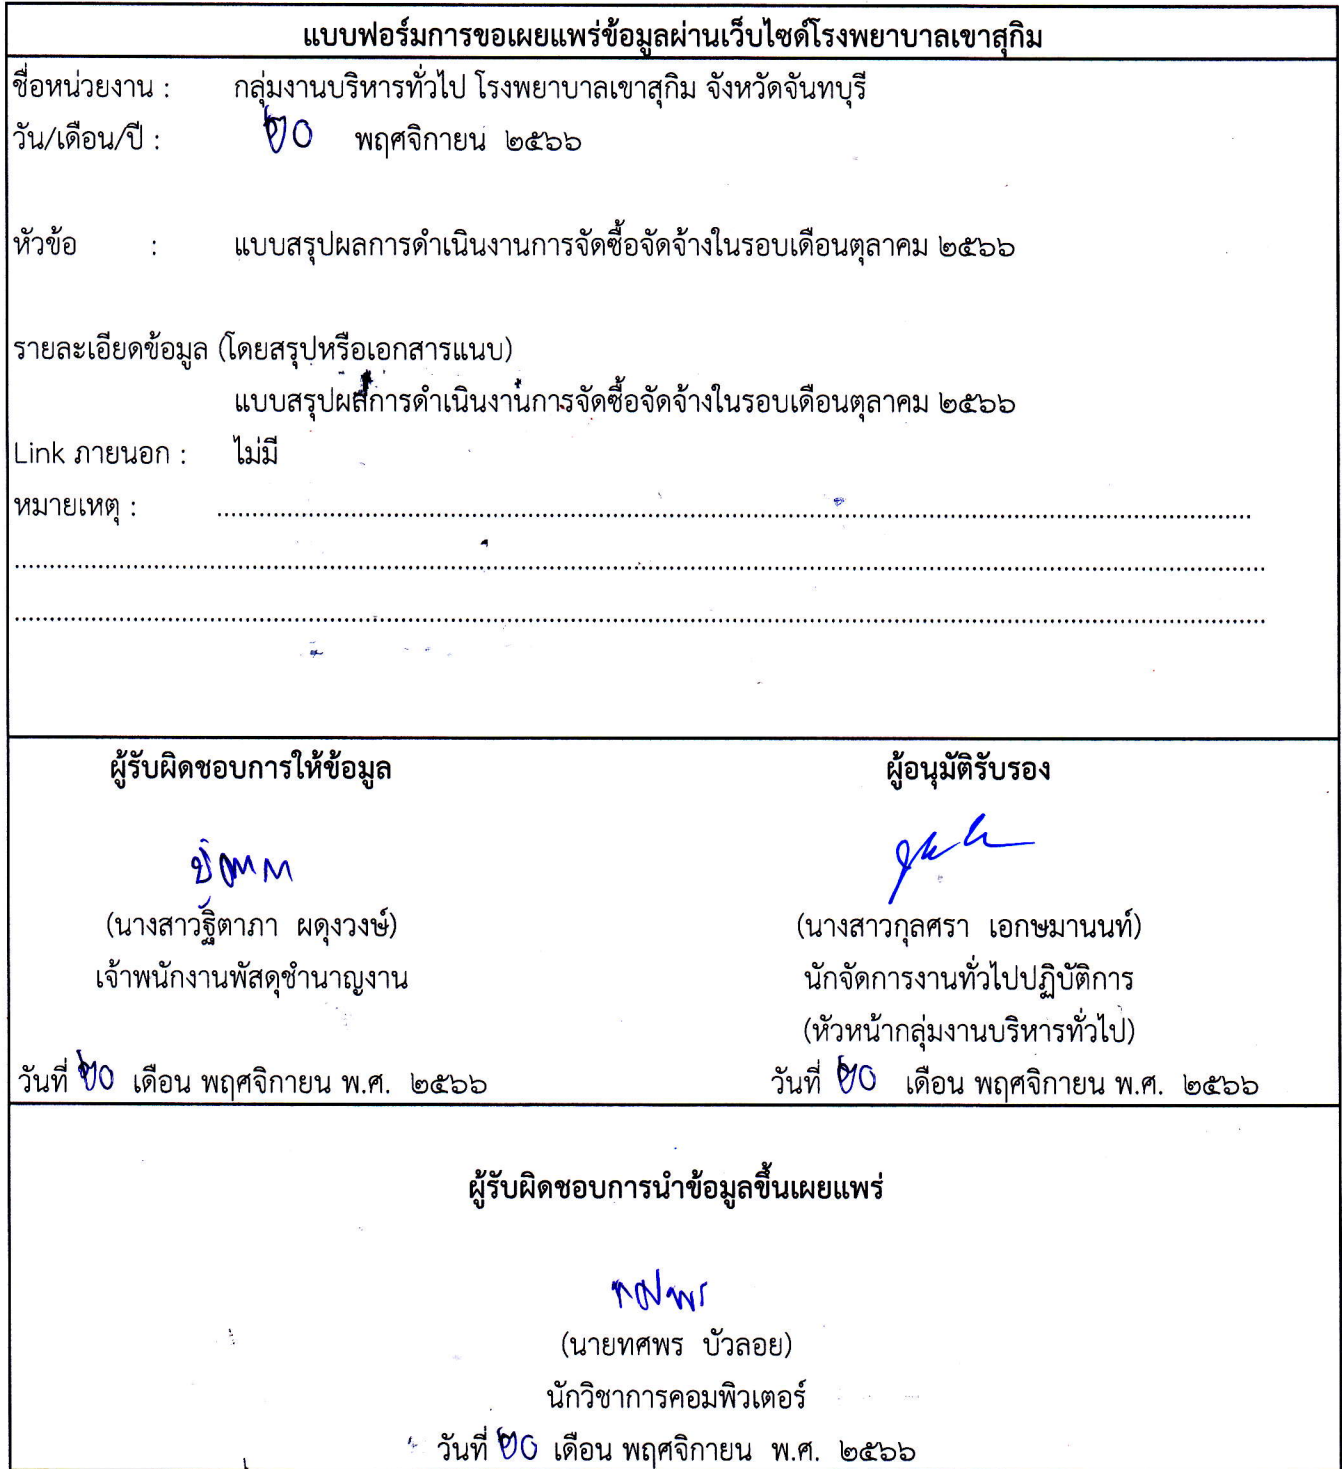 แบบฟอร์มการขอเผยแพร่ข้อมูลผ่านเว็บไซด์โรงพยาบาลเขาสุกิม
ชื่อหน่วยงาน : กลุ่มงานบริหารทั่วไป โรงพยาบาลเขาสุกิม จังหวัดจันทบุรี
วัน/เดือน/ปี : ๒๐ พฤศจิกายน ๒๕๖๖
หัวข้อ : แบบสรุปผลการดำเนินงานการจัดซื้อจัดจ้างในรอบเดือนตุลาคม ๒๕๖๖
รายละเอียดข้อมูล (โดยสรุปหรือเอกสารแนบ)
แบบสรุปผลการดำเนินงานการจัดซื้อจัดจ้างในรอบเดือนตุลาคม ๒๕๖๖
Link ภายนอก : ไม่มี
หมายเหตุ :
ผู้รับผิดชอบการให้ข้อมูล ผู้อนุมัติรับรอง
(นางสาวฐิตาภา ผดุงวงษ์) (นางสาวกุลศรา เอกษมานนท์)
เจ้าพนักงานพัสดุชำนาญงาน นักจัดการงานทั่วไปปฏิบัติการ
(หัวหน้ากลุ่มงานบริหารทั่วไป)
วันที่ ๒๐ เดือน พฤศจิกายน พ.ศ. ๒๕๖๖ วันที่ ๒๐ เดือน พฤศจิกายน พ.ศ. ๒๕๖๖
ผู้รับผิดชอบการนำข้อมูลขึ้นเผยแพร่
ทศพร
(นายทศพร บัวลอย)
นักวิชาการคอมพิวเตอร์
วันที่ ๒๐ เดือน พฤศจิกายน พ.ศ. ๒๕๖๖